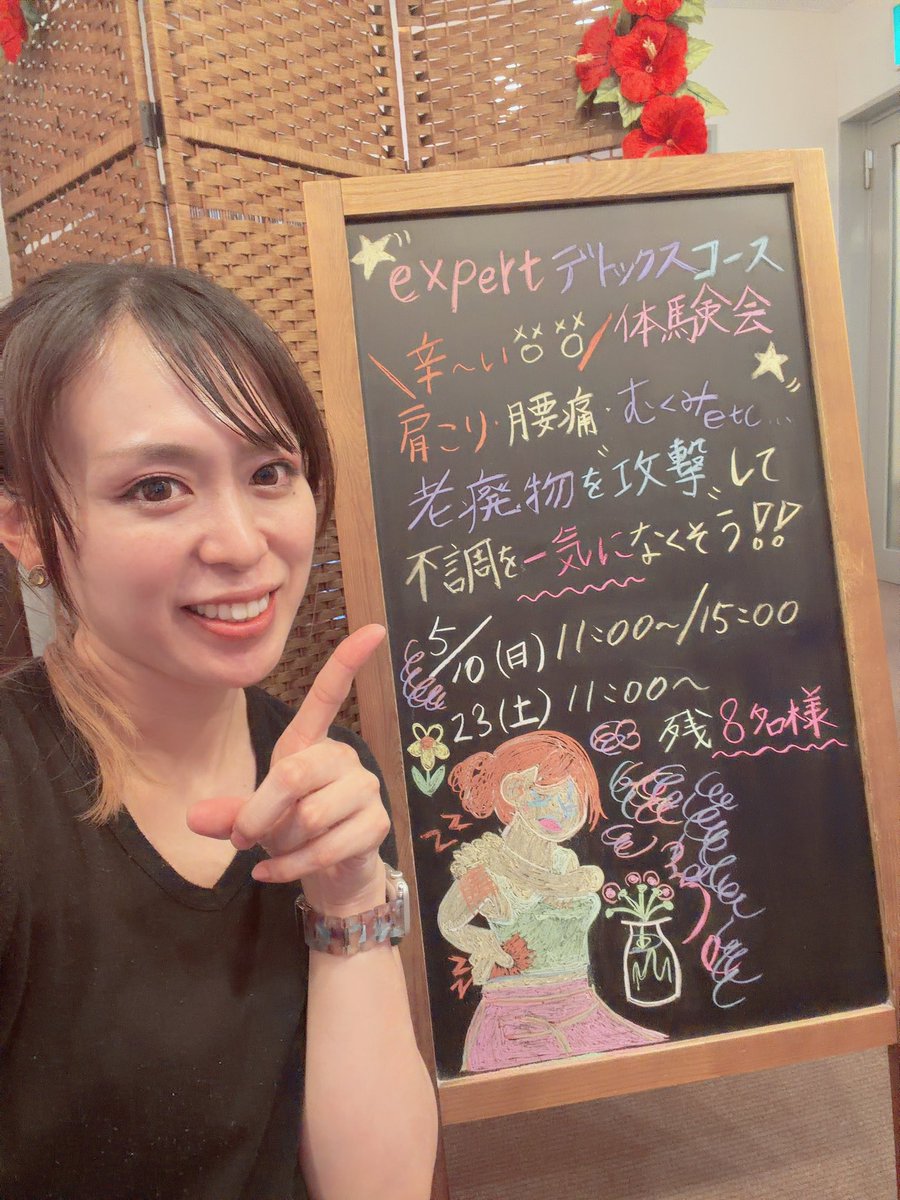 expertデトックスコース
体験会
辛〜い
肩こり・腰痛・むくみetc...
老廃物を"攻撃"して
不調を一気になくそう!!
5/10(日)11:00〜/15:00
23(土)11:00〜
残8名様